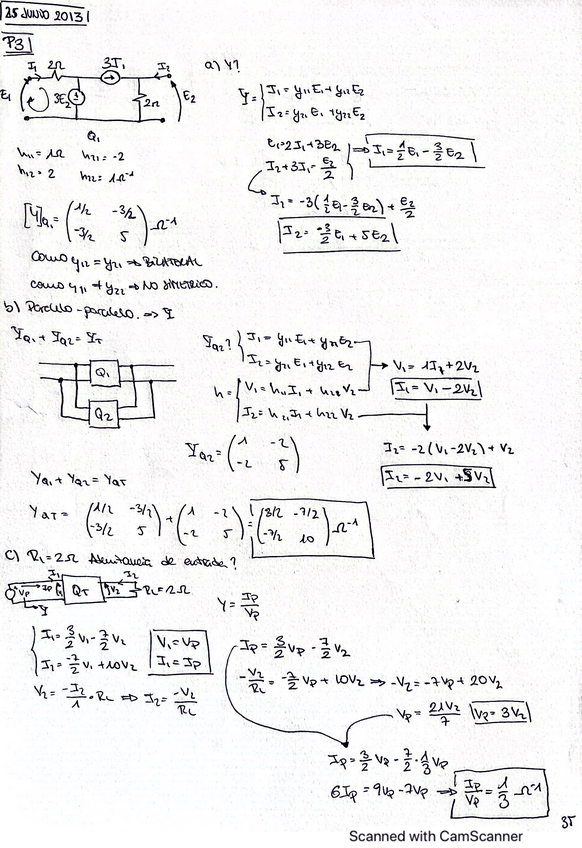 25 JUNIO 2013
P3
I1 2Ω 3I1 I2
E1 3E2 2Ω E2
Q1
a) Y?
Y = { I1 = y11 E1 + y12 E2
I2 = y21 E1 + y22 E2
h11 = 1Ω h21 = -2
h12 = 2 h22 = 1Ω⁻¹
E1 = 2I1 + 3E2
I2 + 3I1 = E2/2
⇒ I1 = 1/2 E1 - 3/2 E2
I2 = -3(1/2 E1 - 3/2 E2) + E2/2
I2 = -3/2 E1 + 5E2
[Y]Q1 = (1/2 -3/2
-3/2 5) Ω⁻¹
COMO y12 = y21 ⇒ BILATERAL
COMO y11 ≠ y22 ⇒ NO SIMETRICO.
b) Paralelo-paralelo. ⇒ Y
YQ1 + YQ2 = YT
Q1
Q2
YQ2? { I1 = y11 E1 + y12 E2
I2 = y21 E1 + y22 E2
h = { V1 = h11 I1 + h12 V2
I2 = h21 I1 + h22 V2
V1 = 1I1 + 2V2
I1 = V1 - 2V2
I2 = -2(V1 - 2V2) + V2
I2 = -2V1 + 5V2
YQ2 = (1 -2
-2 5)
YQ1 + YQ2 = YQT
YQT = (1/2 -3/2
-3/2 5) + (1 -2
-2 5) = (3/2 -7/2
-7/2 10) Ω⁻¹
c) RL = 2Ω Admitancia de entrada?
I1 I2
VP IP QT V2 RL = 2Ω
Y
Y = IP/VP
{ I1 = 3/2 V1 - 7/2 V2
I2 = -7/2 V1 + 10V2
V1 = VP
I1 = IP
V2 = -I2/1 · RL ⇒ I2 = -V2/RL
IP = 3/2 VP - 7/2 V2
-V2/RL = -7/2 VP + 10V2 ⇒ -V2 = -7VP + 20V2
VP = 21V2/7 VP = 3V2
IP = 3/2 VP - 7/2 · 1/3 VP
6IP = 9VP - 7VP ⇒ IP/VP = 1/3 Ω⁻¹
35
Scanned with CamScanner